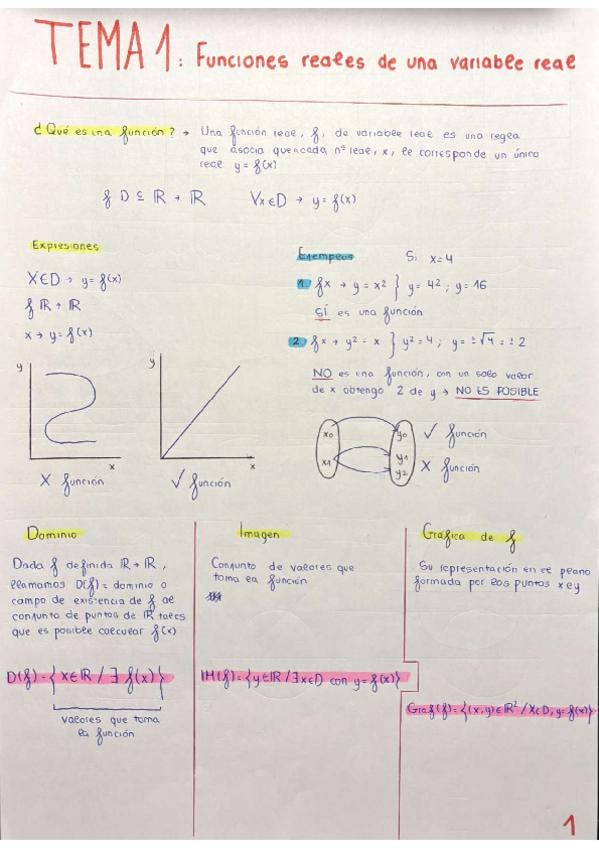 TEMA 1: Funciones reales de una variable real
¿Qué es una función? → Una función real, f, de variable real es una regla
que asocia que ncada nº real, x, le corresponde un único
real y = f(x)
f D ⊆ ℝ → ℝ ∀x∈D → y = f(x)
Expresiones
X∈D → y = f(x)
f ℝ → ℝ
x → y = f(x)
Ejemplos Si x=4
1 fx → y = x² } y = 4² ; y = 16
SÍ es una función
2 fx → y² = x } y² = 4 ; y = ±√4 = ±2
NO es una función, con un solo valor
de x obtengo 2 de y → NO ES POSIBLE
y
x
X función
y
x
✓ función
x0
x1
y0
y1
y2
✓ función
X función
Dominio
Dada f definida ℝ → ℝ,
llamamos D(f) = dominio o
campo de existencia de f al
conjunto de puntos de ℝ tales
que es posible calcular f(x)
D(f) = { x∈ℝ / ∃ f(x) }
valores que toma
la función
Imagen
Conjunto de valores que
toma la función
IM(f) = {y∈ℝ / ∃x∈D con y = f(x)}
Gráfica de f
Su representación en el plano
formada por los puntos x e y
Graf(f) = {(x,y)∈ℝ² / X∈D, y = f(x)}
1